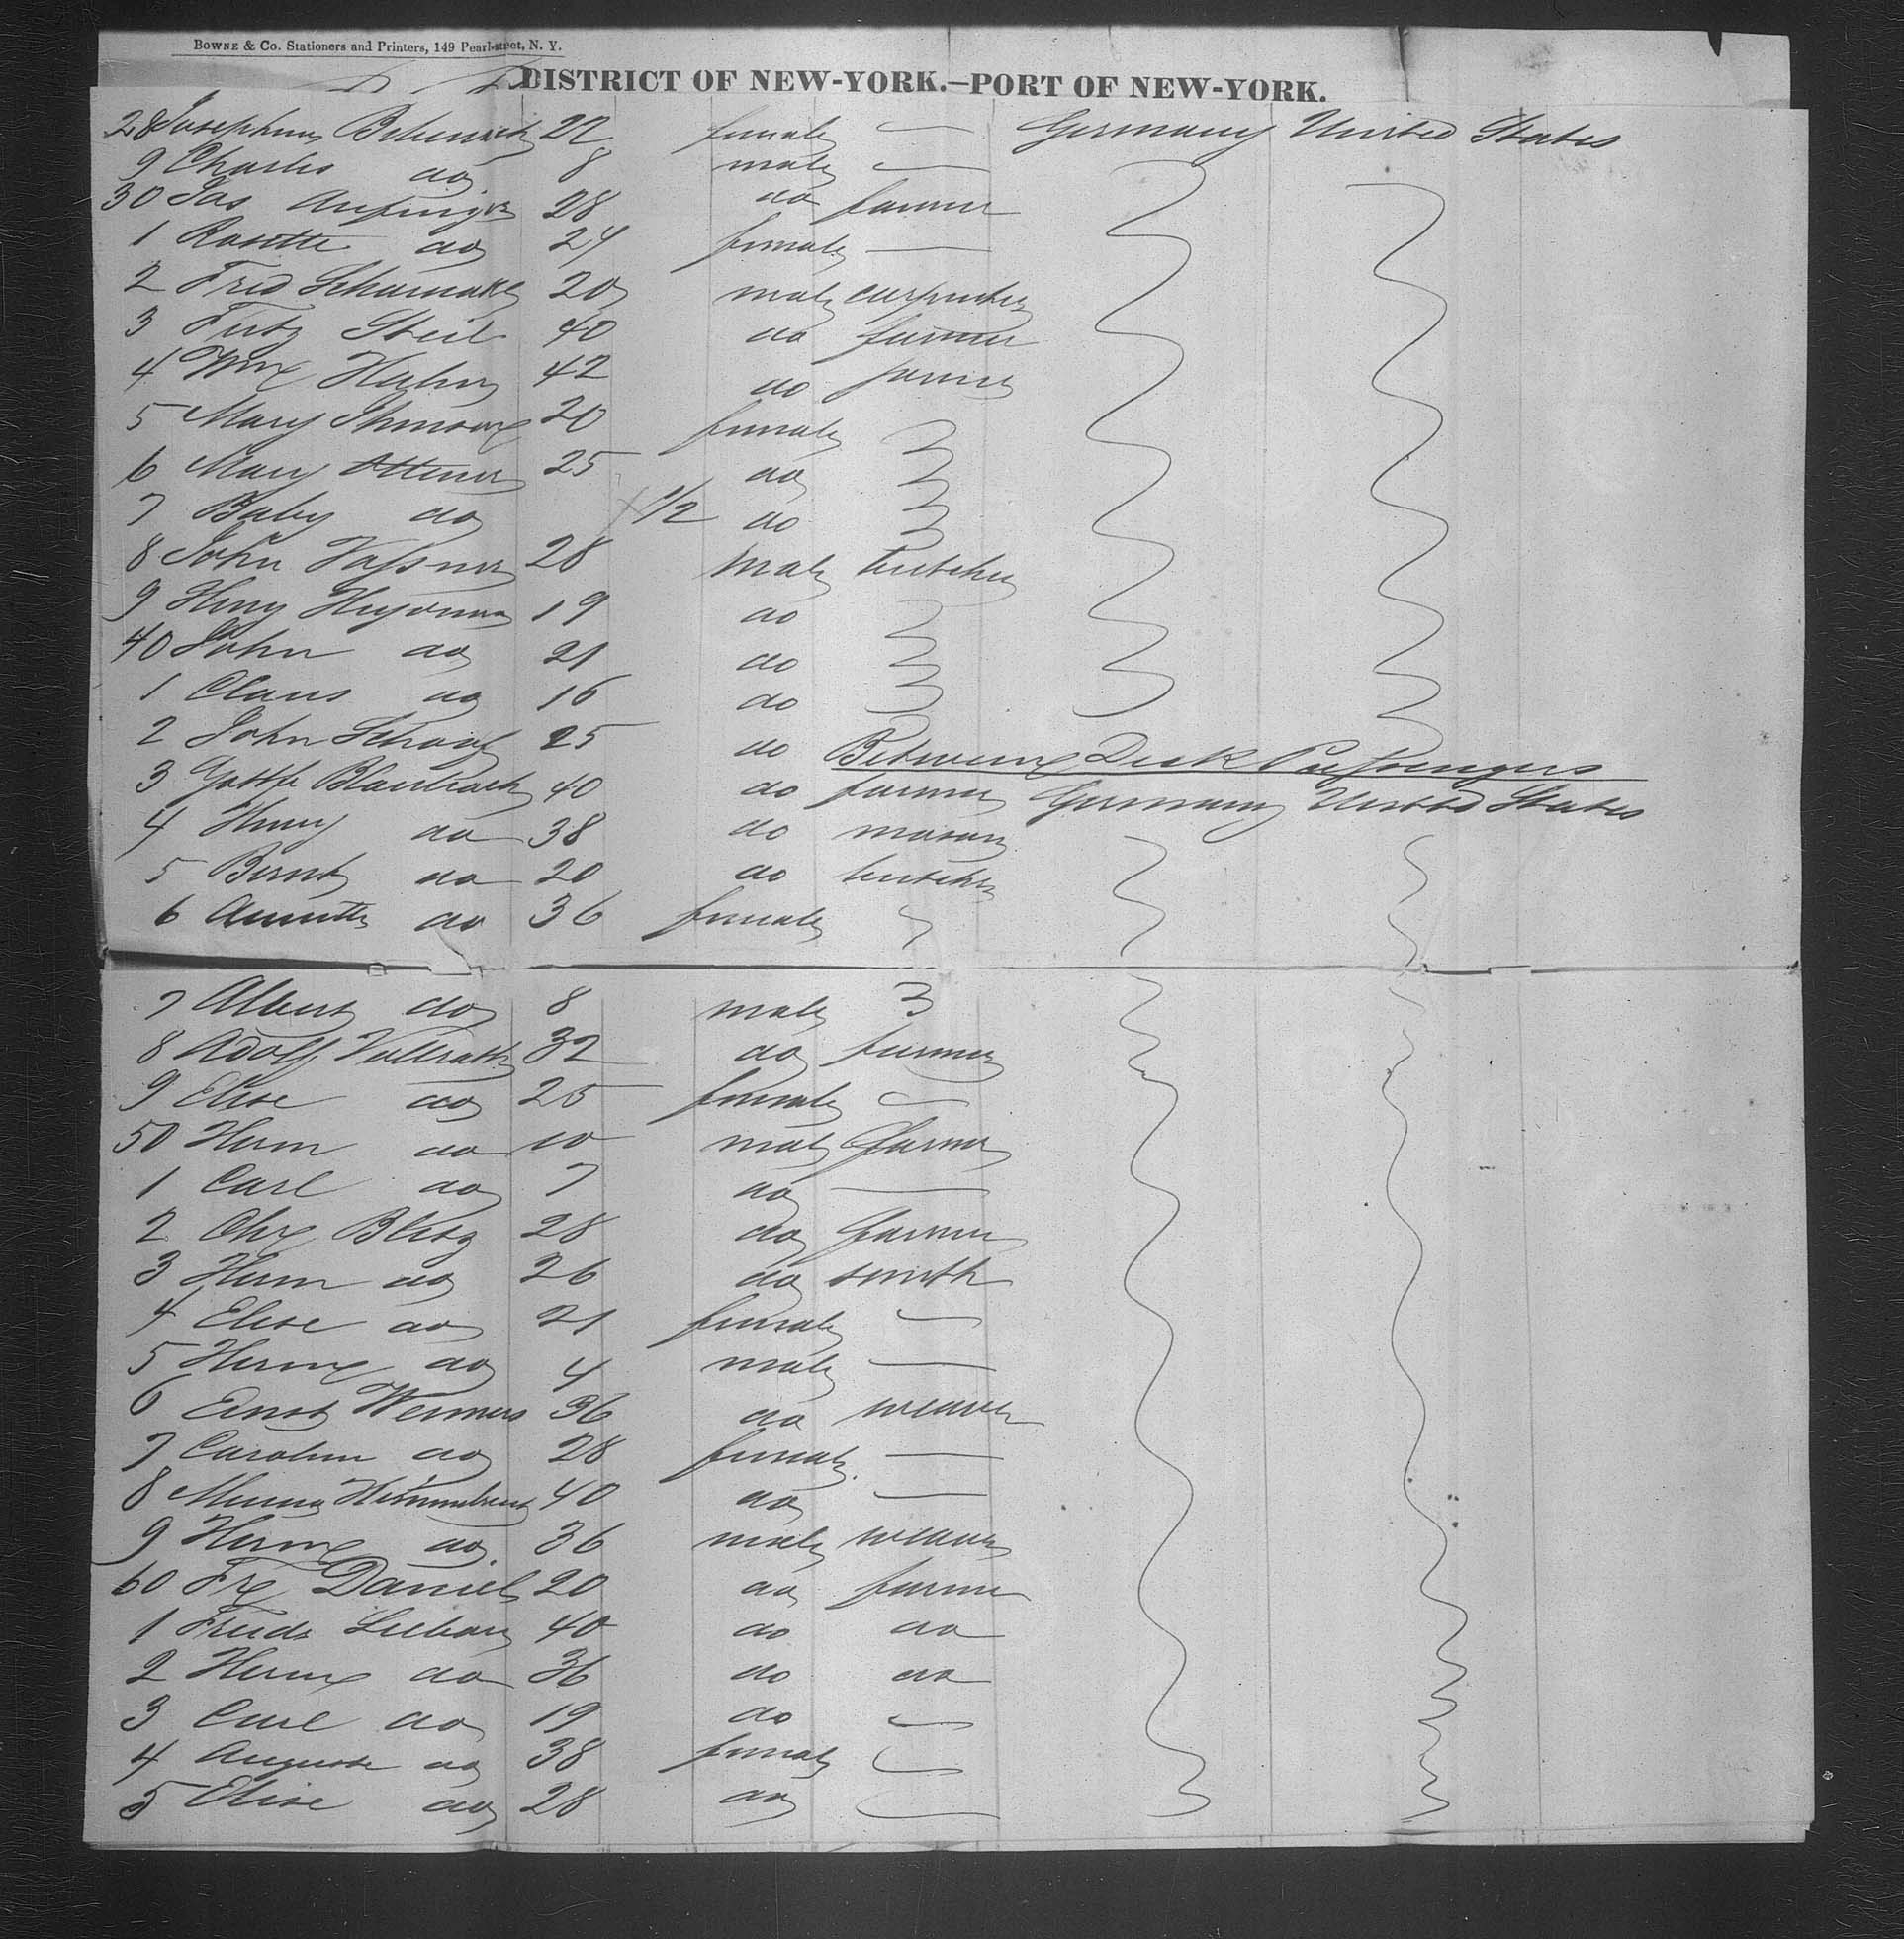 BOWNE & CO. Stationers and Printers, 149 Pearl-street, N. Y.
DISTRICT OF NEW-YORK.—PORT OF NEW-YORK.
28 22 female — Germany United States
9 Charles do 8 male —
30 Jos 28 do farmer
1 Rosette do 24 female —
2 Fred 20 male carpenter
3 Fritz Steil 40 do farmer
4 Wm Hahn 42 do farmer
5 Mary 20 female
6 Mary 25 do
7 Baby do 1/2 do
8 John 28 male butcher
9 Henry 19 do
40 John do 21 do
1 Claus do 16 do
2 John Schoof 25 do Between Deck Passengers
3 40 do farmer Germany United States
4 Henry do 38 do mason
5 Bernt do 20 do butcher
6 do 36 female
7 Albert do 8 male
8 Adolf Vollrath 32 do farmer
9 Elise do 25 female —
50 Herm do 10 male farmer
1 Carl do 7 do —
2 Chr 28 do farmer
3 Herm do 26 do smith
4 Elise do 21 female —
5 Herm do 4 male —
6 Ernst Wermers 36 do weaver
7 Carolin do 28 female —
8 40 do —
9 Herm do 36 male weaver
60 Fr Daniel 20 do farmer
1 40 do do
2 Herm do 36 do do
3 Carl do 19 do —
4 Auguste do 38 female
5 Elise do 28 do